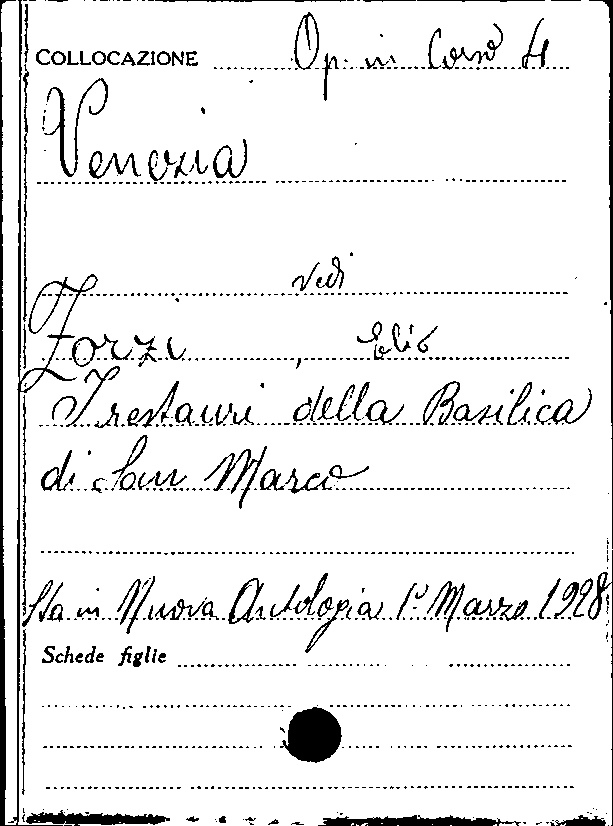 COLLOCAZIONE Op. in Corso 4
Venezia
vedi
Zorzi, Elio
I restauri della Basilica
di San Marco
Sta in Nuova Antologia 1º Marzo 1928
Schede figlie